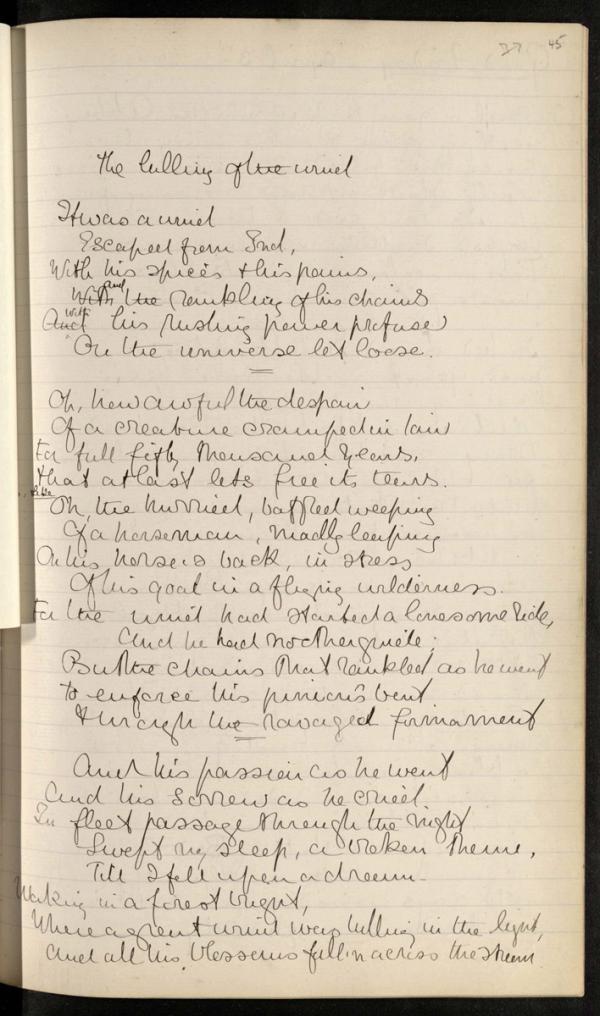 27 45
The lulling of the wind
It was a wind
Escaped from Ind,
With his spices & his pains,
With and the rankling of his chains
And With his rushing power profuse
On the universe let loose.
Oh, how awful the despair
Of a creature cramped in lair
For full fifty thousand years,
That at last lets free its tears.
Oh, the hurried, baffled weeping
Of a horseman, madly leaping
On his horse's back, in stress
Of his goal in a flying wilderness.
For the wind had started a lonesome ride,
And he had no other guide;
But the chains that rankled as he went
To enforce his pinions bent
Through the ravaged firmament
And his passion as he went
And his sorrow as he cried
In fleet passage through the night
Swept my sleep, a broken theme,
Till I fell upon a dream
Waking in a forest bright,
Where a great wind was lulling in the light,
And all his blossoms fall'n across the stream.